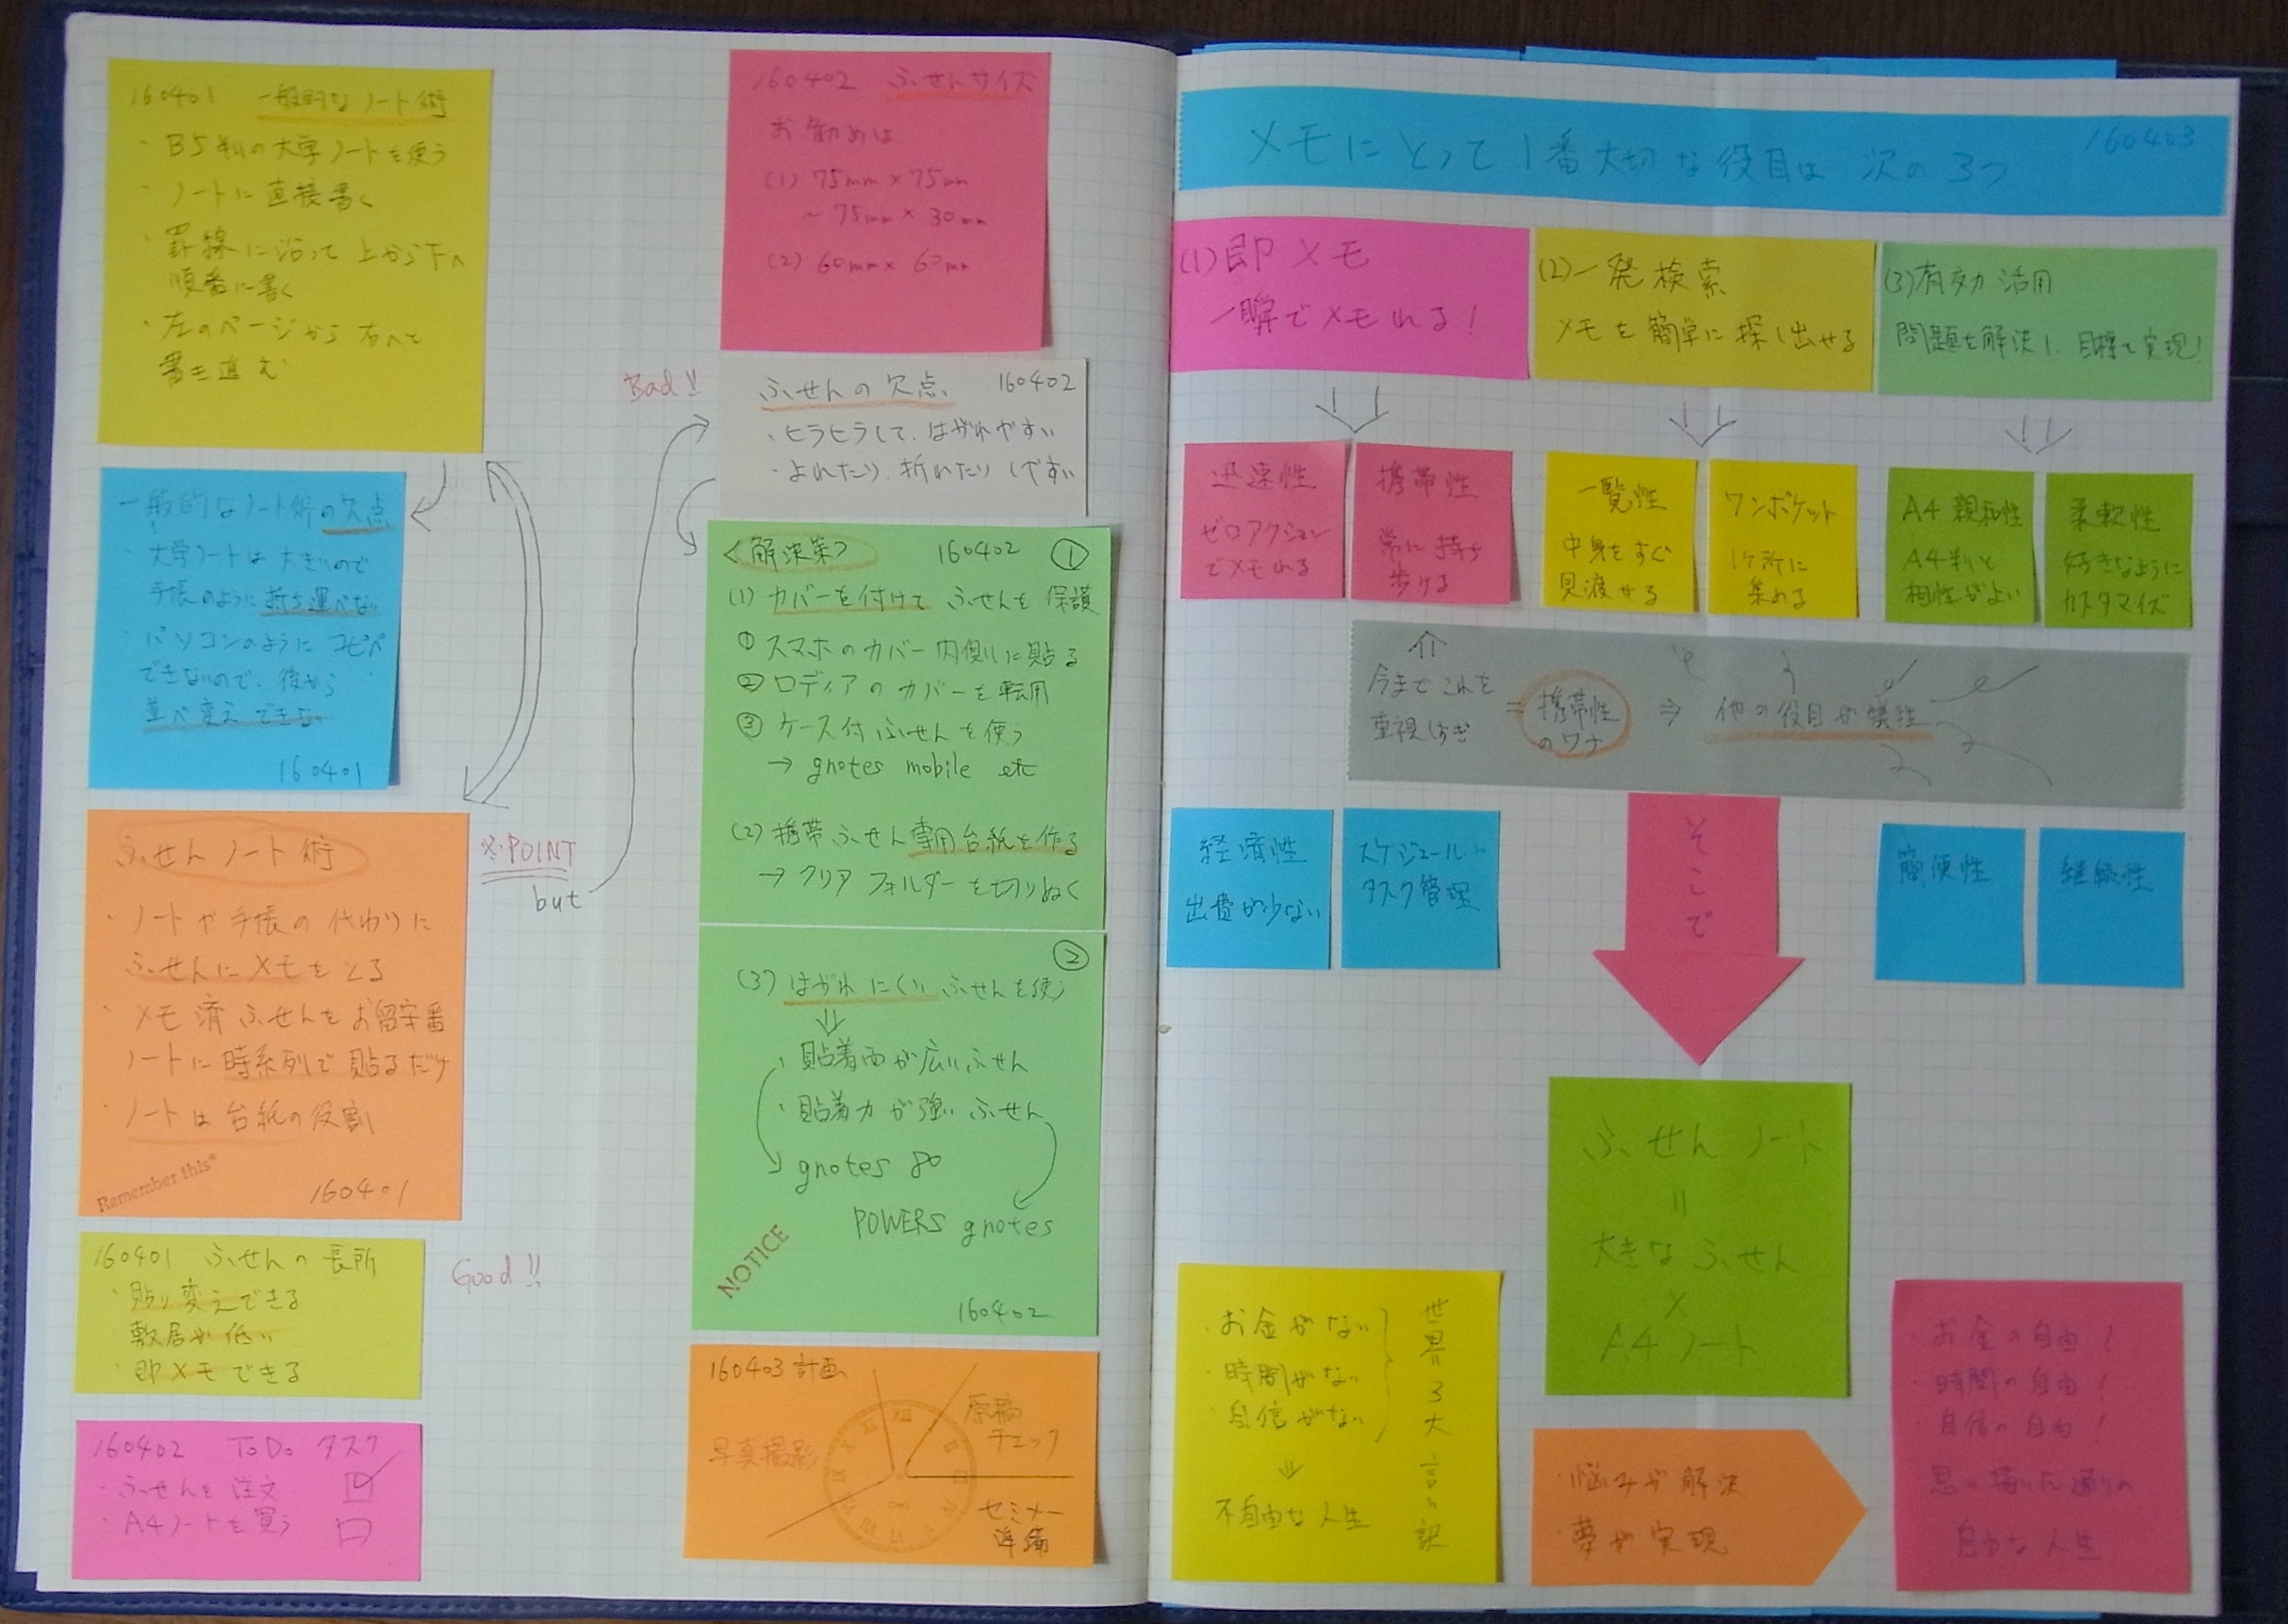 160401 一般的なノート術
・B5判の大学ノートを使う
・ノートに直接書く
・罫線に沿って上から下へ
順番に書く
・左のページから右へと
書き進む
一般的なノート術の欠点
・大学ノートは大きいので
手帳のように持ち運べない
・パソコンのようにコピペ
できないので、後から
並べ変えできない
160401
ふせんノート術
・ノートや手帳の代わりに
ふせんにメモをとる
・メモ済ふせんをお留守番
ノートに時系列で貼るだけ
・ノートは台紙の役割
Remember this®
160401
※POINT
but
160401 ふせんの長所
・貼り変えできる
・敷居が低い
・即メモできる
Good!!
160402 ToDo タスク
・ふせんを注文 ☑
・A4ノートを買う □
160402 ふせんサイズ
お勧めは
(1) 75mm×75mm
～75mm×30mm
(2) 60mm×60mm
Bad!!
ふせんの欠点 160402
・ヒラヒラして、はがれやすい
・よれたり、折れたりしやすい
<解決策> 160402 ①
(1) カバーを付けてふせんを保護
① スマホのカバー内側に貼る
② ロディアのカバーを転用
③ ケース付ふせんを使う
→ gnotes mobile etc
(2) 携帯ふせん専用台紙を作る
→ クリアフォルダーを切りぬく
②
(3) はがれにくいふせんを使う
⇓
・貼着面が広いふせん
・貼着力が強いふせん
gnotes 80
POWERS gnotes
NOTICE
160402
160403 計画
写真撮影
原稿
チェック
セミナー
準備
160403
メモにとって1番大切な役目は次の3つ
(1) 即メモ
一瞬でメモれる!
(2) 一発検索
メモを簡単に探し出せる
(3) 有効活用
問題を解決し、目標を実現!
迅速性
ゼロアクション
でメモれる
携帯性
常に持ち
歩ける
一覧性
中身をすぐ
見渡せる
ワンポケット
1ヶ所に
集める
A4親和性
A4判と
相性がよい
柔軟性
好きなように
カスタマイズ
今までこれを
重視しすぎ
= 携帯性
のワナ
⇒ 他の役目が犠牲
経済性
出費が少ない
スケジュール・
タスク管理
そこで
簡便性
継続性
ふせんノート
=
大きなふせん
×
A4ノート
・お金がない
・時間がない
・自信がない
⇓
不自由な人生
世界3大言い訳
・悩みが解決
・夢が実現
・お金の自由!
・時間の自由!
・自信の自由!
思い描いた通りの
自由な人生